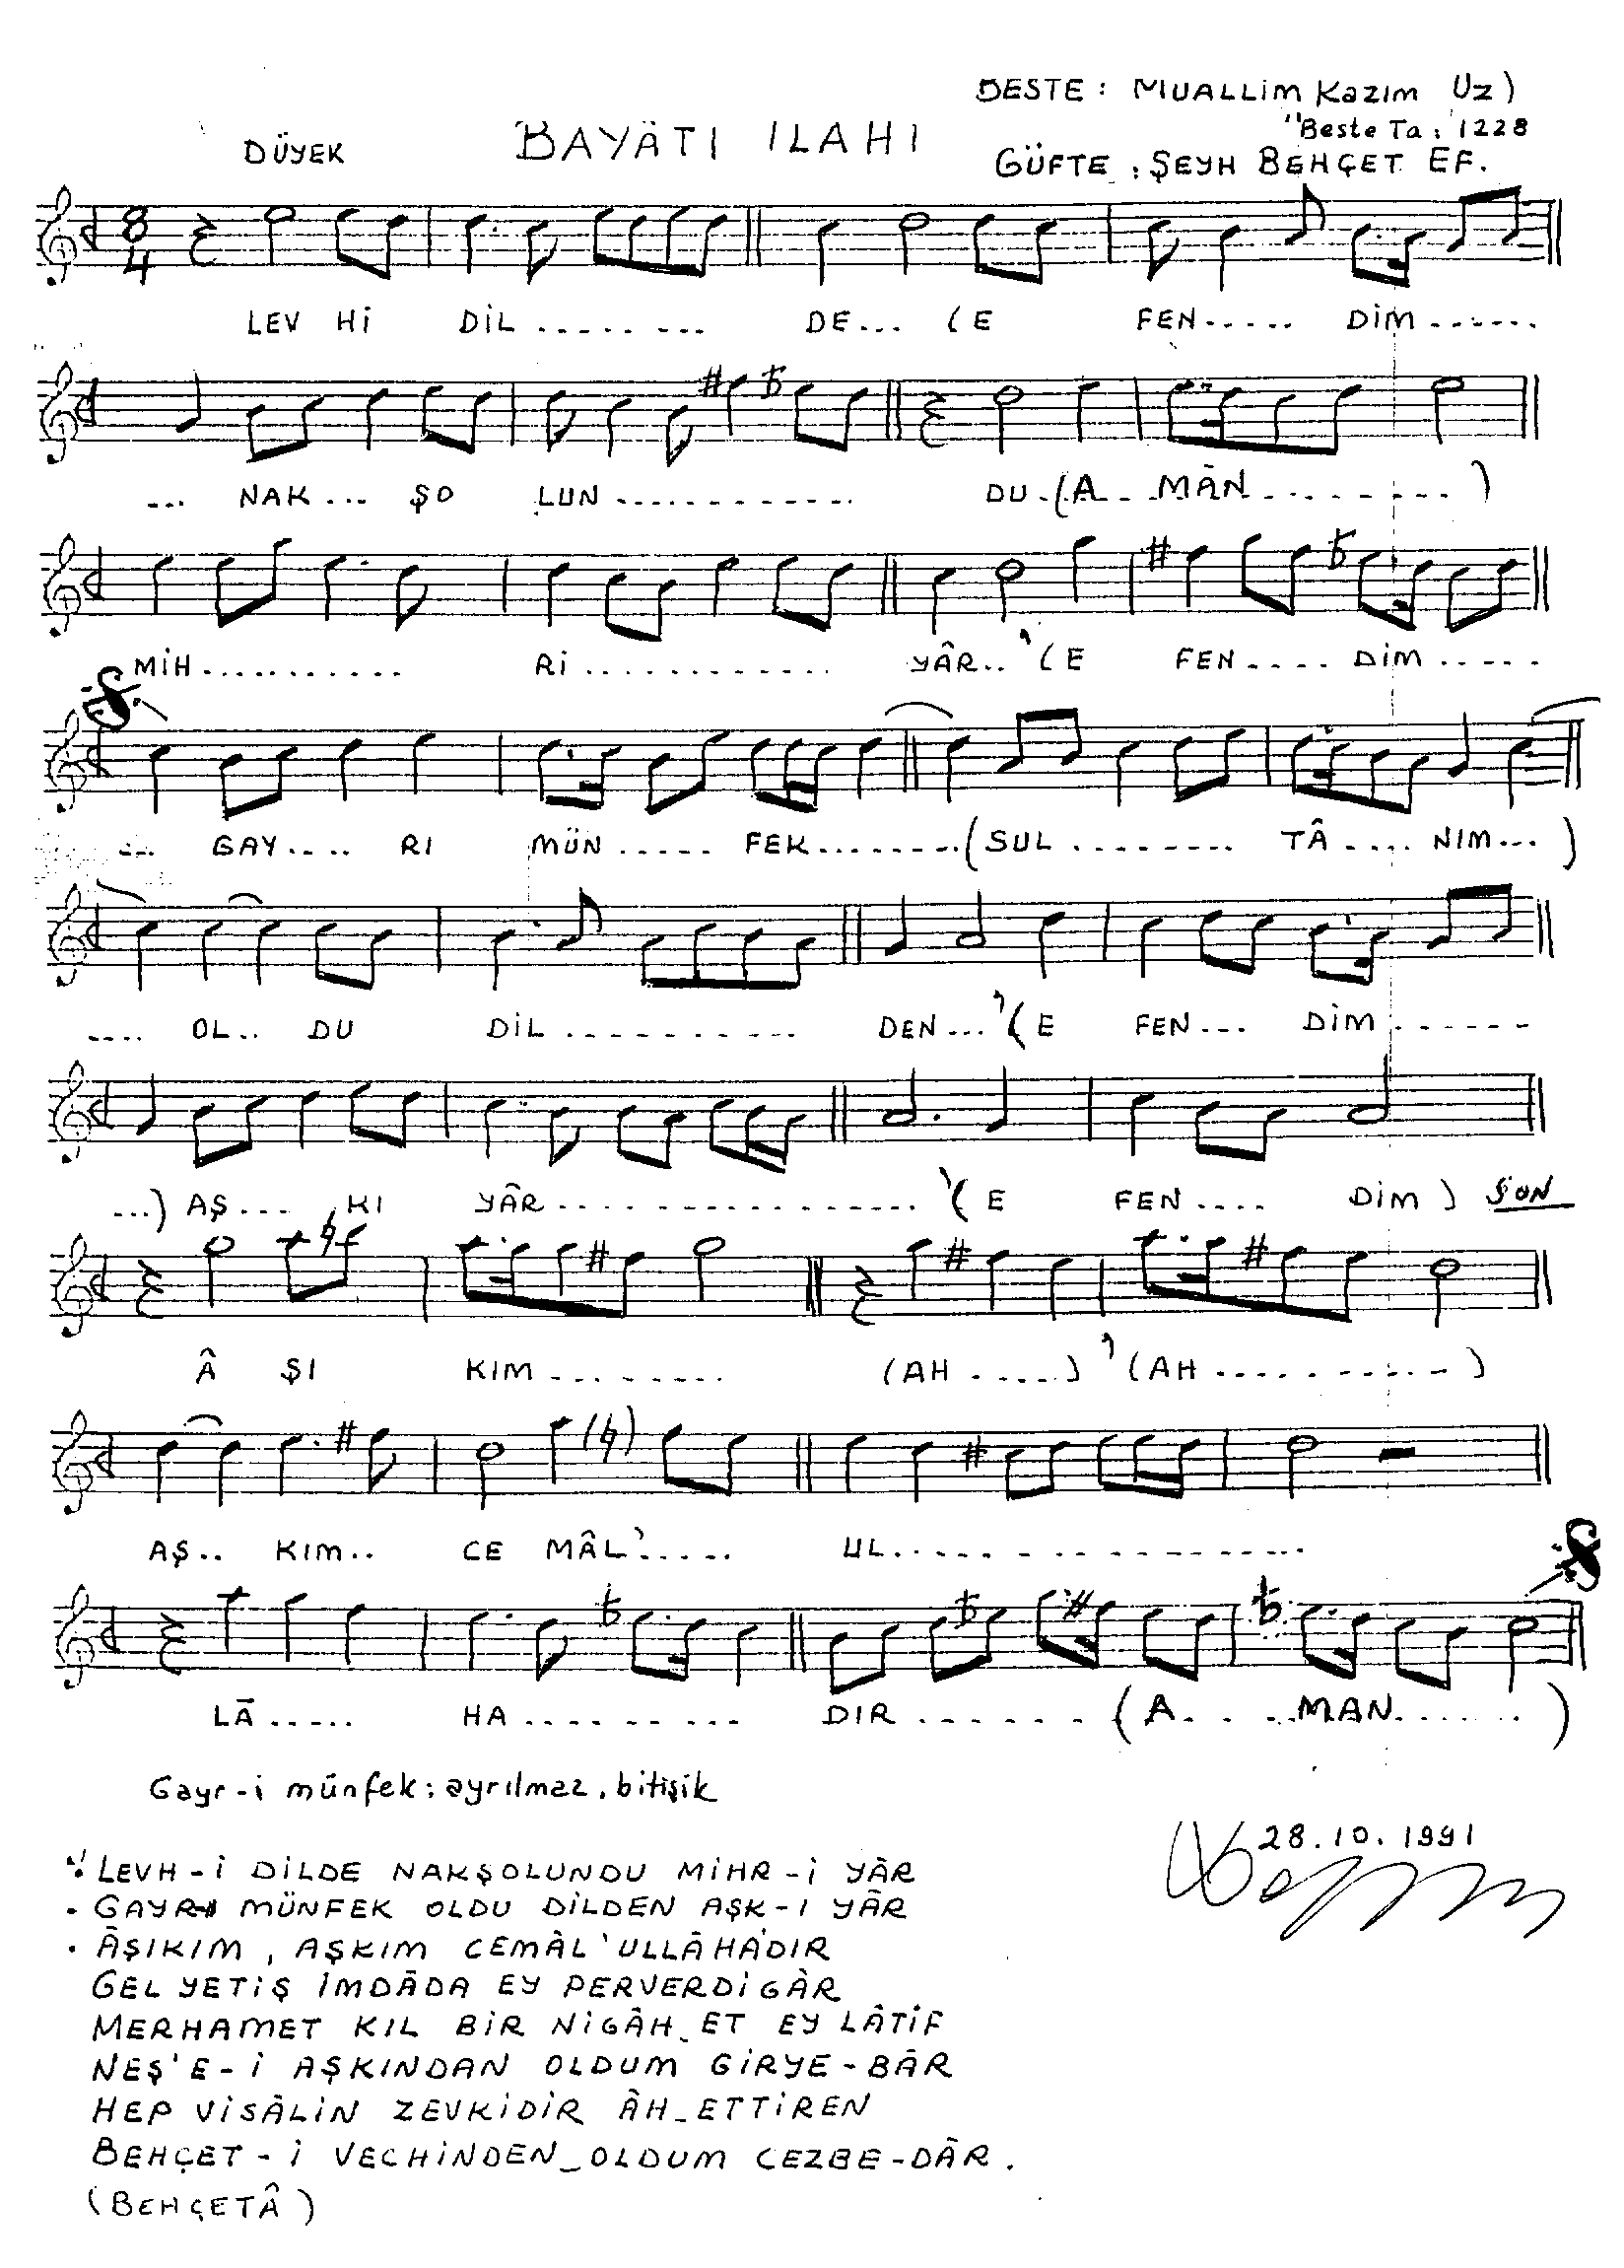 BESTE : MUALLİM KAZIM UZ)
DÜYEK BAYÂTI ILAHI "Beste Ta : 1228
GÜFTE : ŞEYH BEHÇET EF.
8
4
LEV Hİ DİL ......... DE... (E FEN..... DİM ......
... NAK... ŞO LUN ............ DU.(A.. MÂN.........)
MİH .......... Rİ ............ YÂR..' (E FEN.... DİM .....
... GAY.... RI MÜN ..... FEK........(SUL ........ TÂ .... NIM...)
.... OL.. DU DİL ............ DEN...' (E FEN... DİM .......
...) AŞ... KI YÂR ................ '(E FEN .... DİM) SON
Â ŞI KIM ......... (AH .....)' (AH ...........)
AŞ.. KIM.. CE MÂL'..... UL................
LÂ ..... HA ......... DIR ....... (A. ..MAN.......)
Gayr-i münfek : ayrılmaz, bitişik
28.10.1991
LEVH-İ DİLDE NAKŞOLUNDU MİHR-İ YÂR
• GAYR-I MÜNFEK OLDU DİLDEN AŞK-I YÂR
• ÂŞIKIM , AŞKIM CEMÂL'ULLÂHA'DIR
GEL YETİŞ İMDÂDA EY PERVERDİGÂR
MERHAMET KIL BİR NİGÂH_ET EY LÂTİF
NEŞ'E-İ AŞKINDAN OLDUM GİRYE-BÂR
HEP VİSÂLİN ZEVKİDİR ÂH_ETTİREN
BEHÇET-İ VECHİNDEN_OLDUM CEZBE-DÂR.
(BEHÇETÂ)